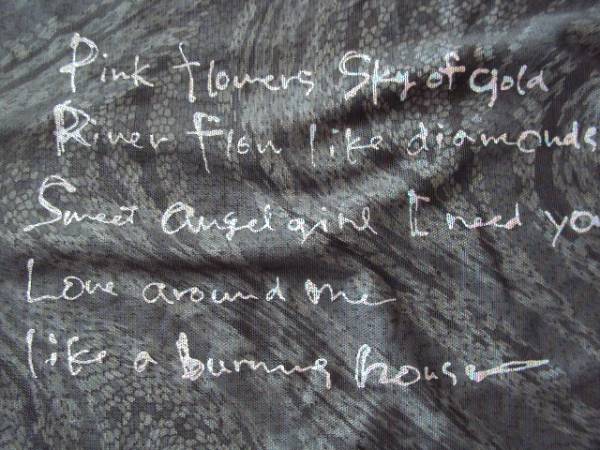 Pink flowers Sky of gold
River flow like diamonds
Sweet angel girl I need yo
Love around me
like a burning house